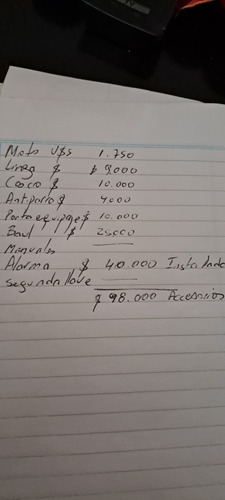 Moto U$S 1.750
Linea $ $ 9.000
Casco $ 10.000
Antiparra $ 4000
Portaequipaje $ 10.000
Baul $ 25000
Manuales —
Alarma $ 40.000 Instalada
segunda llave —
$ 98.000 Accesorios